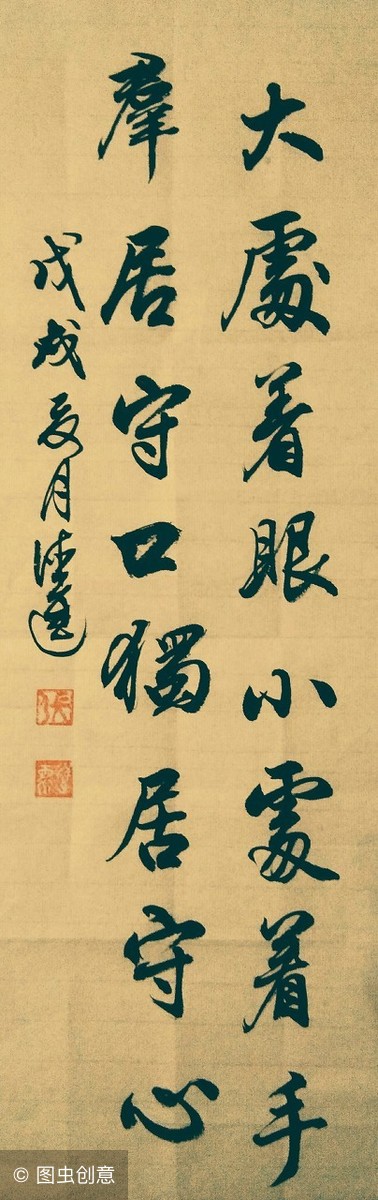 大處着眼小處着手
羣居守口獨居守心
戊戌夏月
张
© 图虫创意